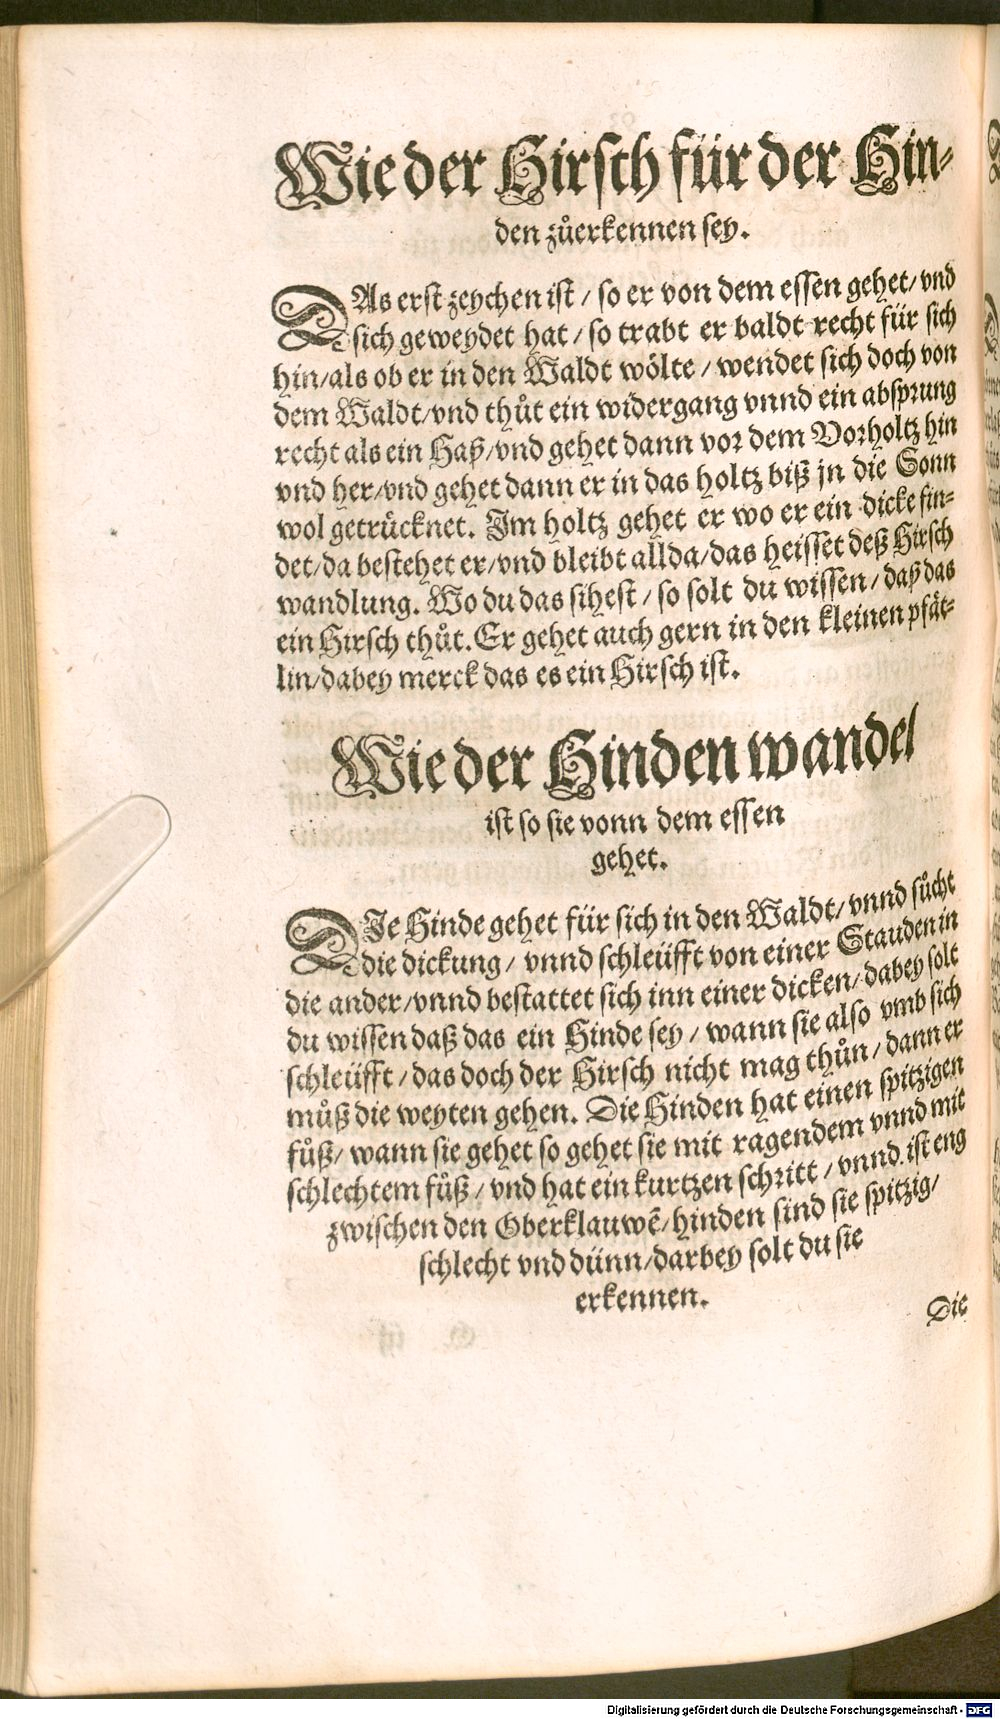 Wie der Hirsch für der Hin-
den zůerkennen sey.
DAs erst zeychen ist / so er von dem essen gehet / vnd
sich geweydet hat / so trabt er baldt recht für sich
hin / als ob er in den Waldt wölte / wendet sich doch von
dem Waldt / vnd thůt ein widergang vnnd ein absprung
recht als ein Haß / vnd gehet dann vor dem Vorholtz hin
vnd her / vnd gehet dann er in das holtz biß jn die Sonn
wol getrücknet. Im holtz gehet er wo er ein dicke fin-
det / da bestehet er / vnd bleibt allda / das heisset deß Hirsch
wandlung. Wo du das sihest / so solt du wissen / daß das
ein Hirsch thůt. Er gehet auch gern in den kleinen pfät-
lin / dabey merck das es ein Hirsch ist.
Wie der Hinden wandel
ist so sie vonn dem essen
gehet.
DIe Hinde gehet für sich in den Waldt / vnnd sůcht
die dickung / vnnd schleüfft von einer Stauden in
die ander / vnnd bestattet sich inn einer dicken / dabey solt
du wissen daß das ein Hinde sey / wann sie also vmb sich
schleüfft / das doch der Hirsch nicht mag thůn / dann er
můß die weyten gehen. Die Hinden hat einen spitzigen
fůß / wann sie gehet so gehet sie mit ragendem vnnd mit
schlechtem fůß / vnd hat ein kurtzen schritt / vnnd ist eng
zwischen den Oberklauwē / hinden sind sie spitzig /
schlecht vnd dünn / darbey solt du sie
erkennen.
Die
Digitalisierung gefördert durch die Deutsche Forschungsgemeinschaft - DFG